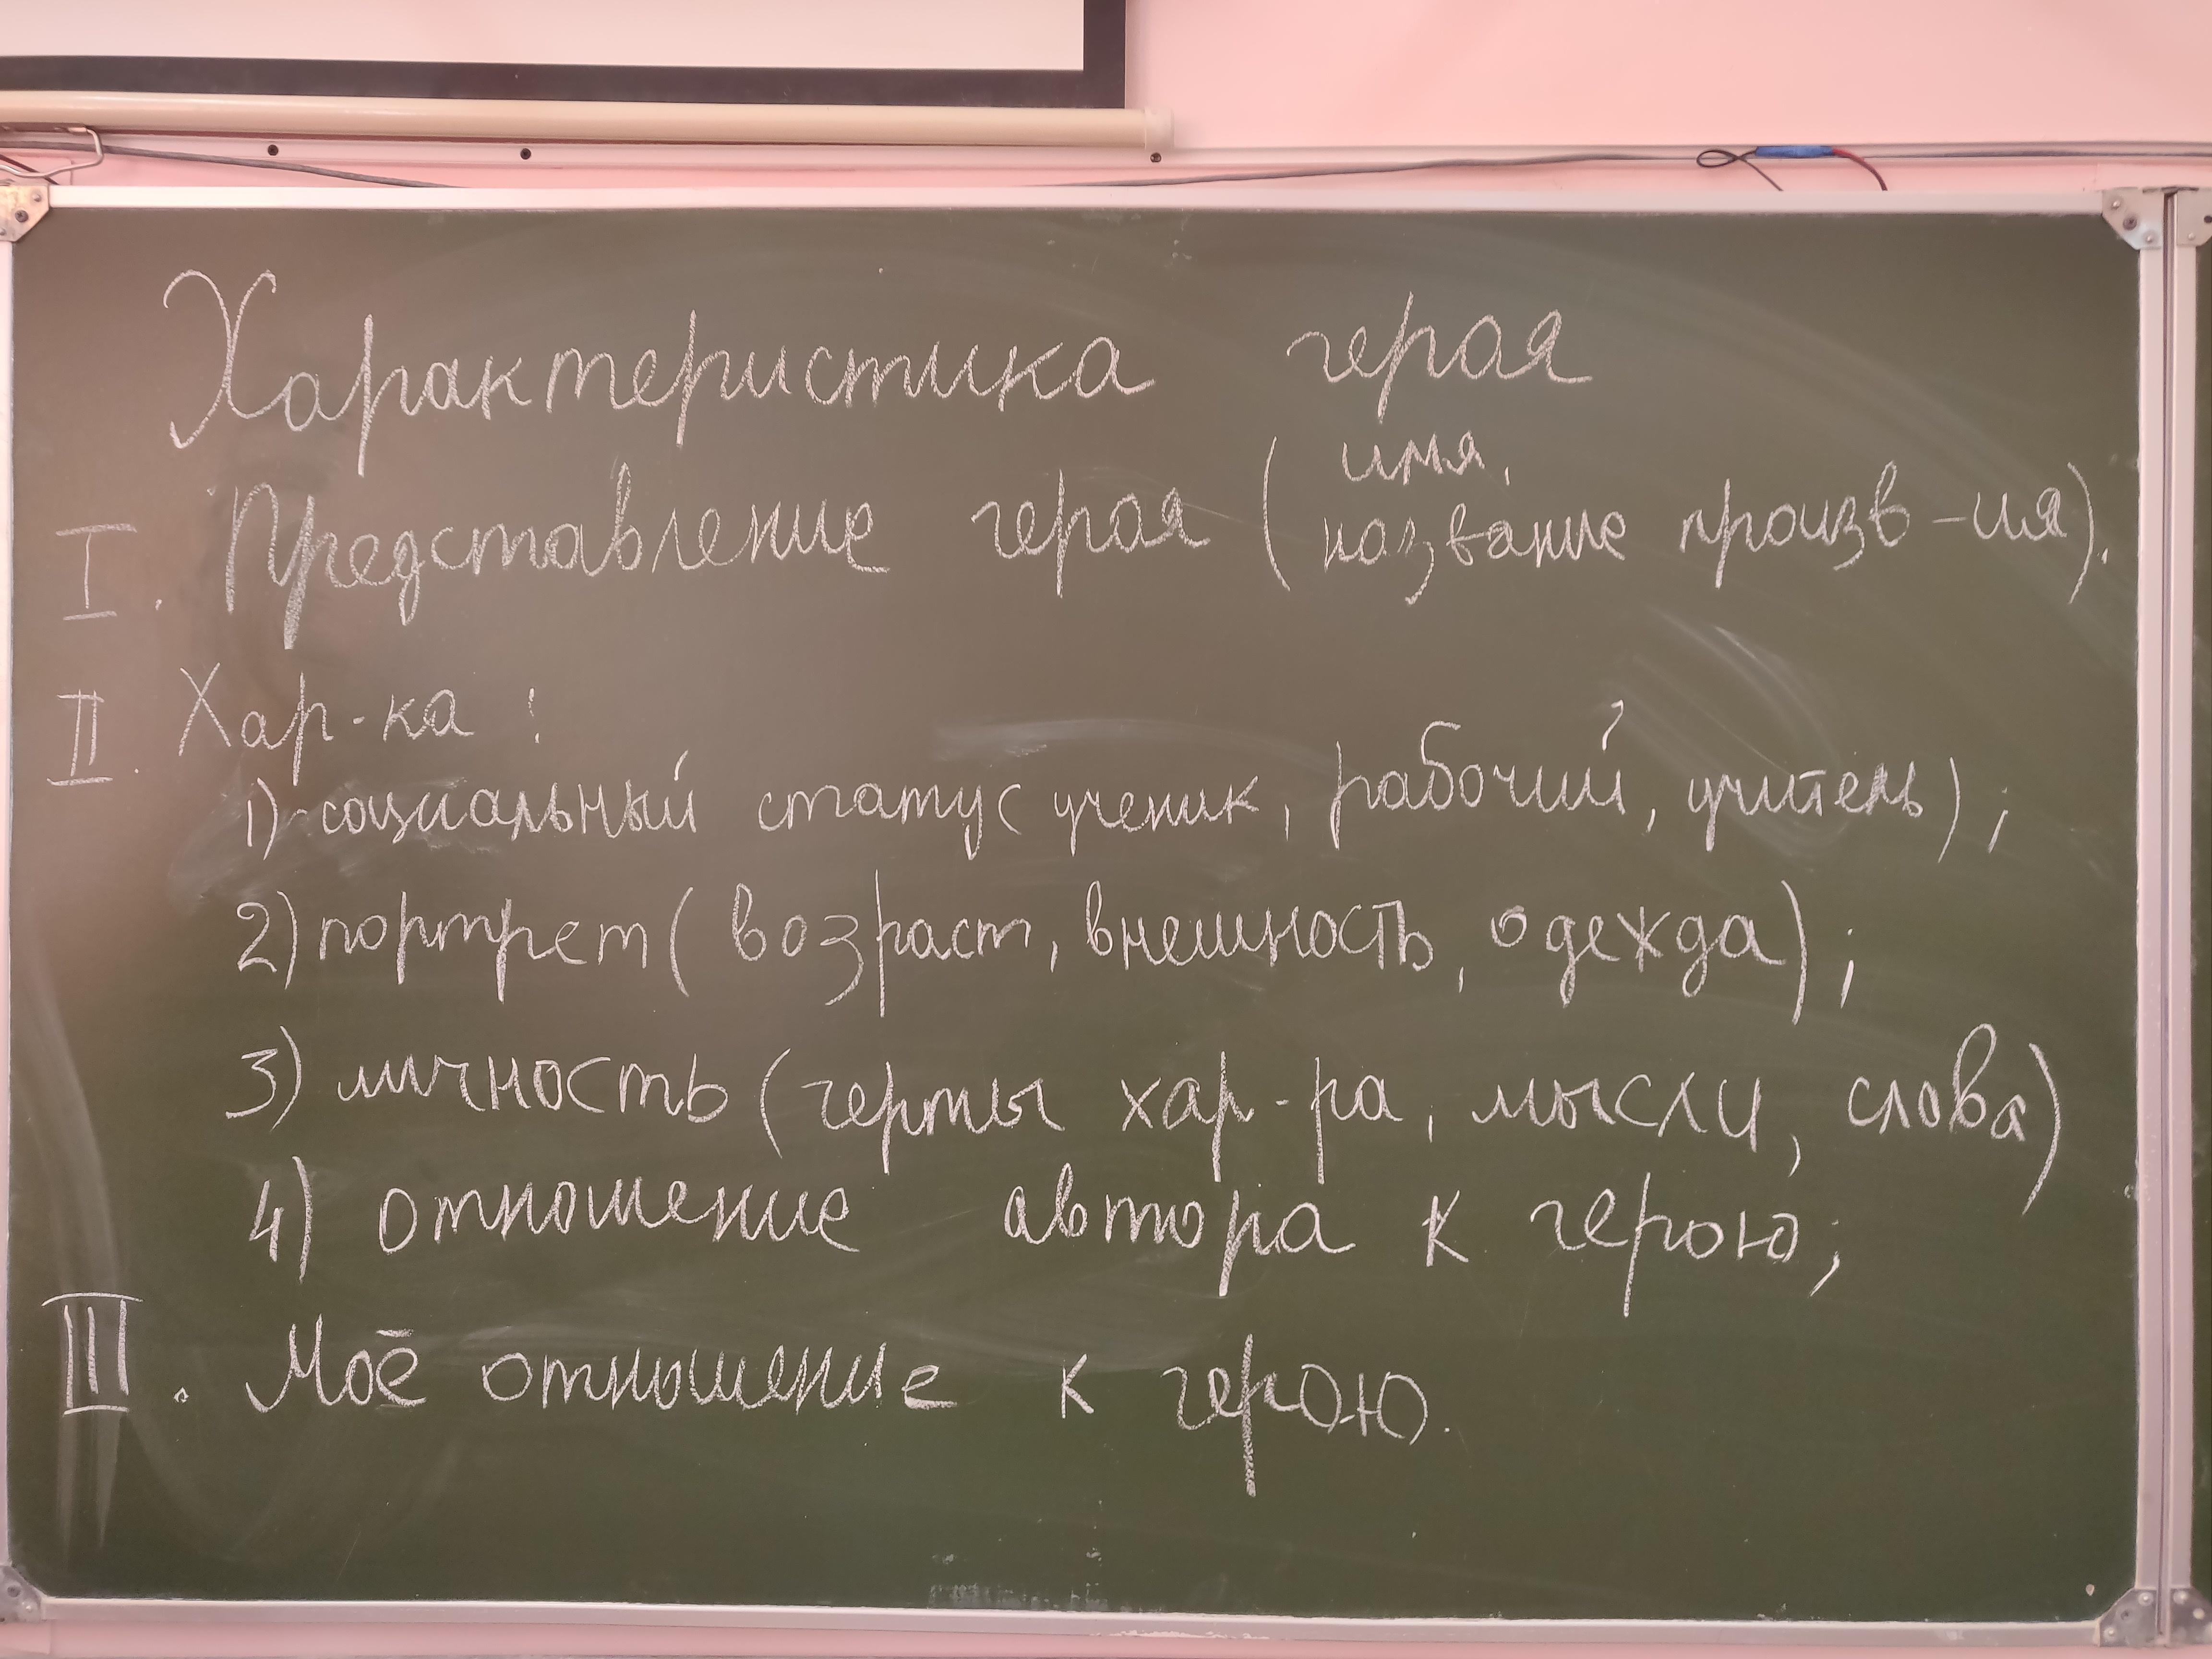 Характеристика героя
I. Представление героя (имя, название произв-ия).
II. Хар-ка:
1) социальный статус (ученик, рабочий, учитель);
2) портрет (возраст, внешность, одежда);
3) личность (черты хар-ра, мысли, слова)
4) отношение автора к герою;
III. Моё отношение к герою.